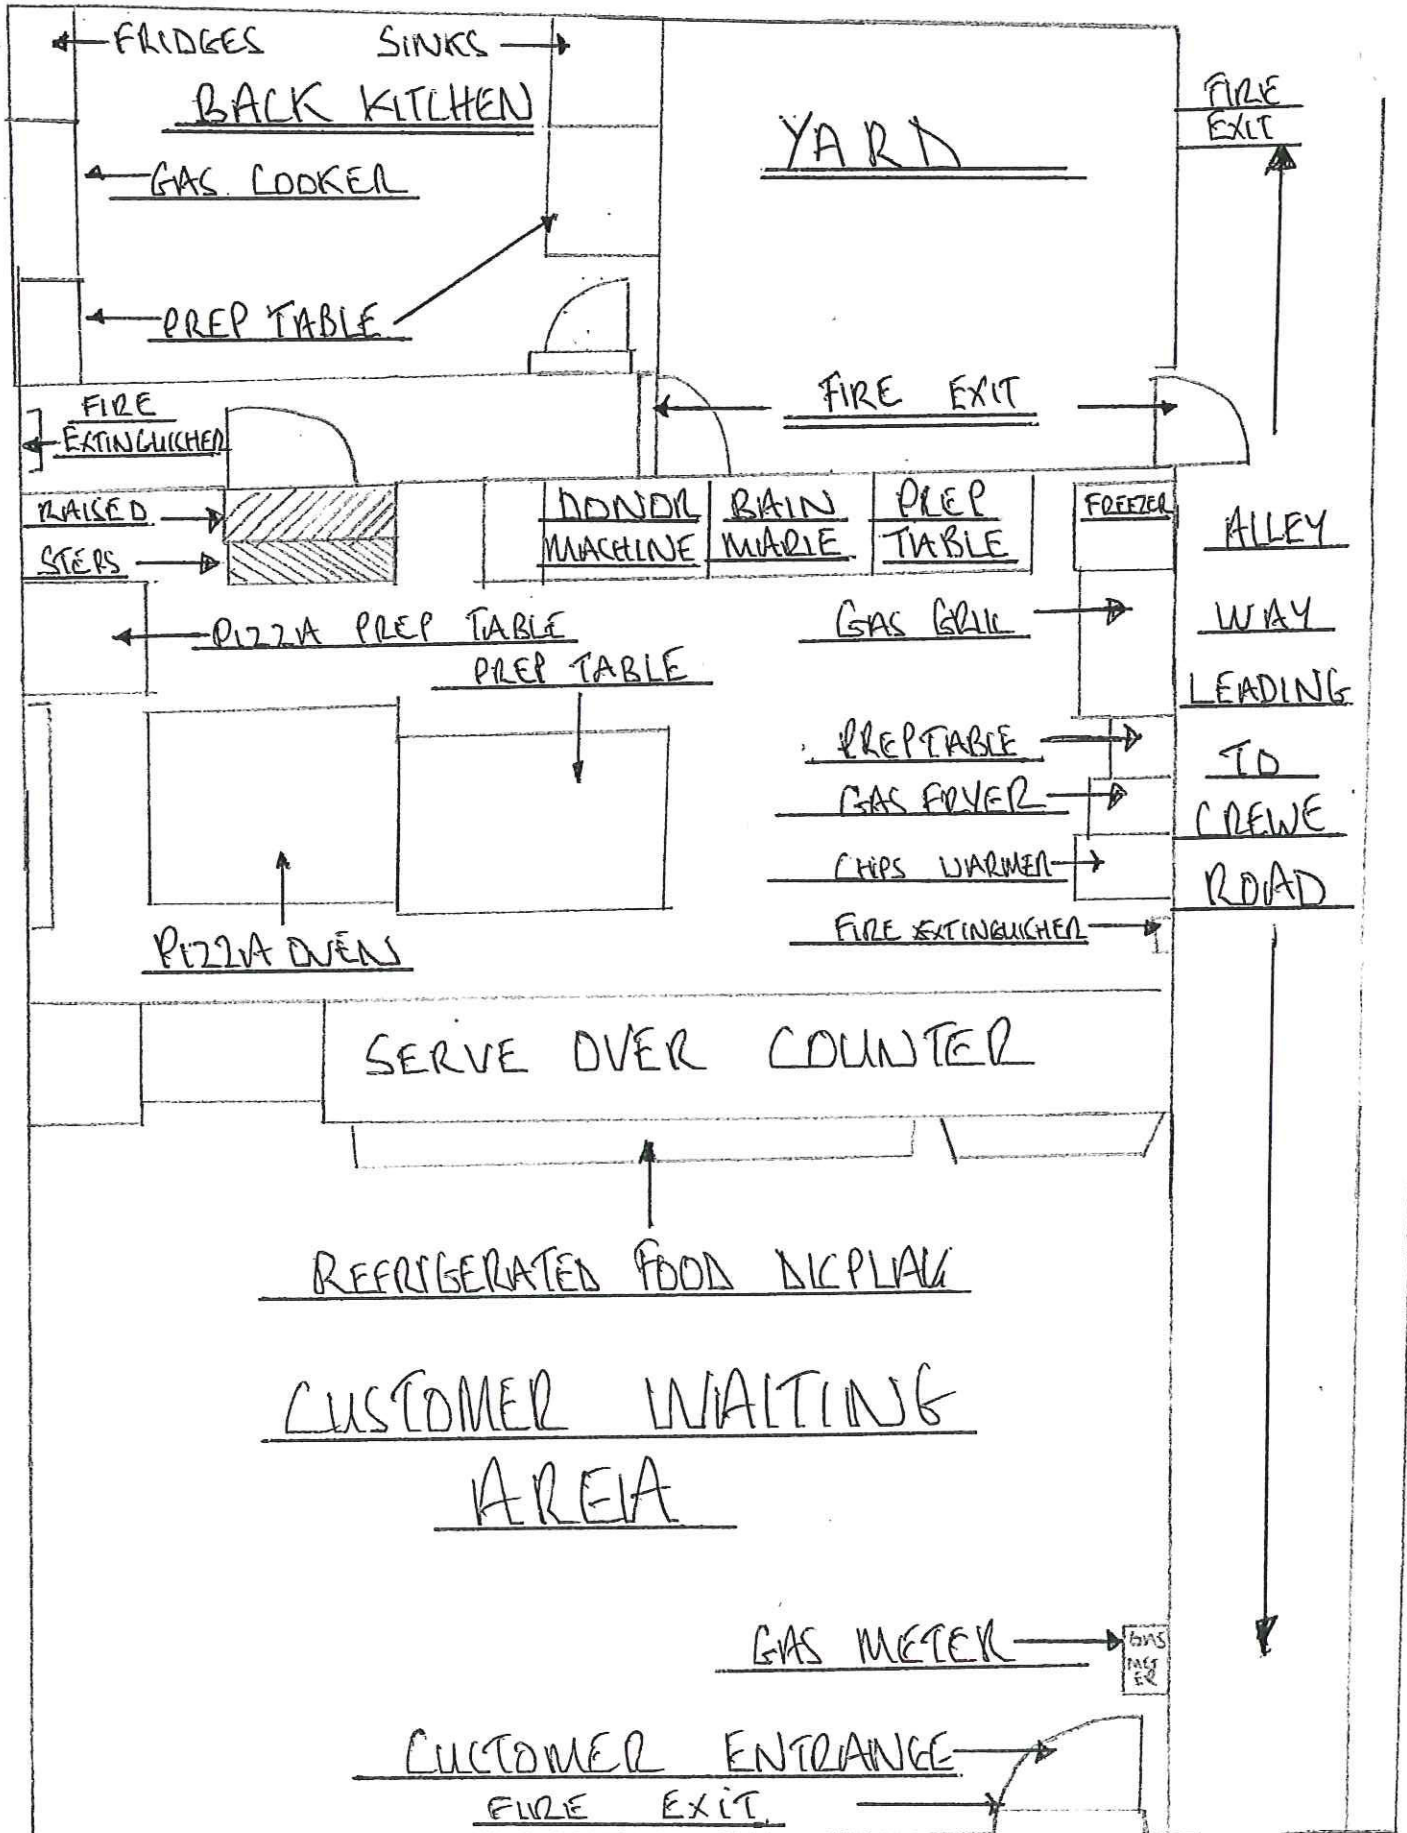 FRIDGES SINKS
BACK KITCHEN
YARD
FIRE
EXIT
GAS COOKER
PREP TABLE
FIRE EXIT
FIRE
EXTINGUICHER
RAISED
STEPS
DONOR
MACHINE
BAIN
MARIE
PREP
TABLE
FREEZER
ALLEY
WAY
LEADING
TO
CREWE
ROAD
PIZZA PREP TABLE
PREP TABLE
GAS GRILL
PREP TABLE
GAS FRYER
CHIPS WARMER
FIRE EXTINGUICHER
PIZZA OVEN
SERVE OVER COUNTER
REFRIGERATED FOOD DICPLAY
CUSTOMER WAITING
AREA
GAS METER
GAS
MET
ER
CUCTOMER ENTRANCE
FIRE EXIT